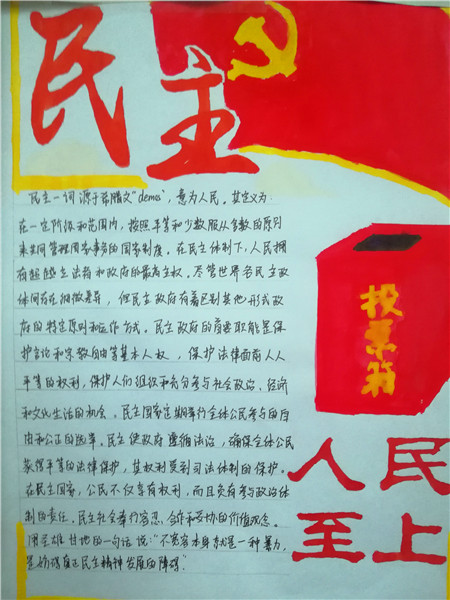 民主
民主一词源于希腊文“demos”,意为人民。其定义为:
在一定阶级和范围内,按照平等和少数服从多数的原则
来共同管理国家事务的国家制度。在民主体制下,人民拥
有超越立法者和政府的最高主权。尽管世界各民主政
体间存在细微差异,但民主政府有着区别其他形式政
府的特定原则和运作方式。民主政府的首要职能是保
护言论和宗教自由等基本人权,保护法律面前人人
平等的权利,保护人们组织和充分参与社会政治、经济
和文化生活的机会。民主国家定期举行全体公民参与的自
由和公正的选举。民主使政府遵循法治,确保全体公民
获得平等的法律保护,其权利受到司法体制的保护。
在民主国家,公民不仅享有权利,而且负有参与政治体
制的责任。民主社会奉行容忍、合作和妥协的价值观念。
用圣雄 甘地的一句话说:“不宽容本身就是一种暴力,
是妨碍真正民主精神发展的障碍”
投票箱
人民
至上